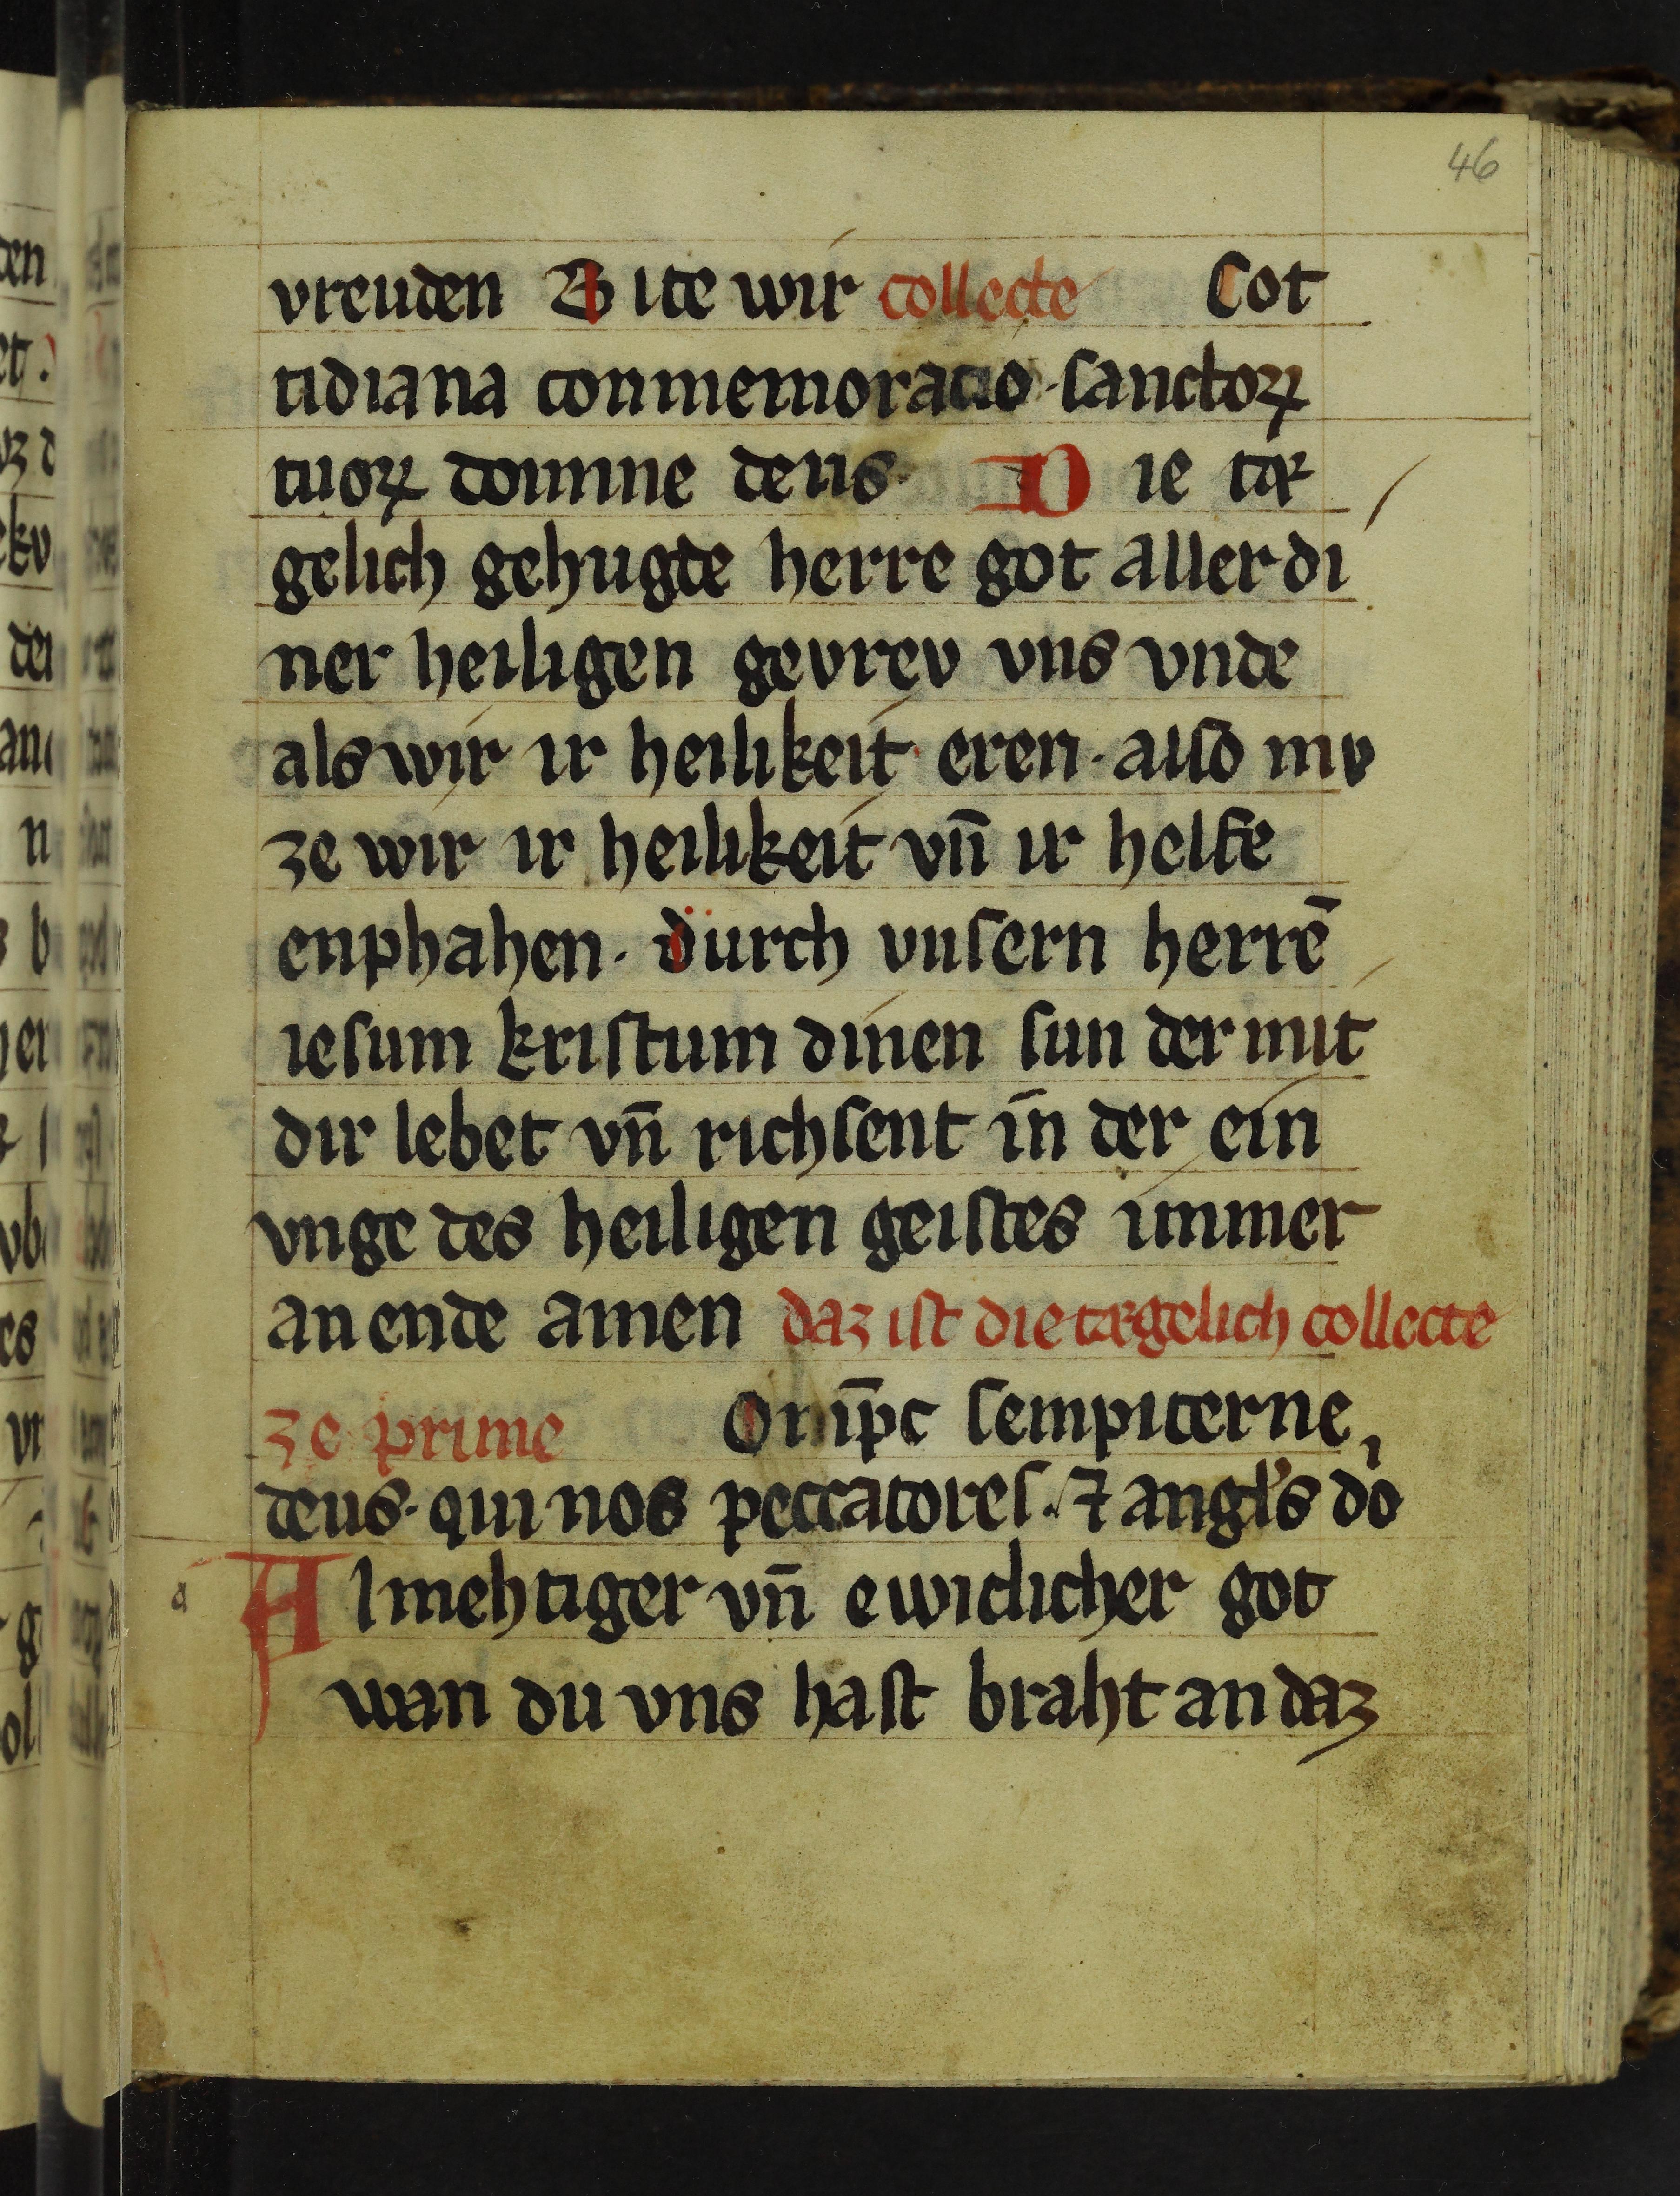 46
vreuden Bite wir collecte Cot
tidiana conmemoratio · sanctoꝝ
tuoꝝ domine deus · Die tæ
gelich gehugde herre got aller di
ner heiligen gevrev vns vnde
als wir ir heilikeit eren · also mv
ze wir ir heilikeit vn̄ ir helfe
enphahen · durch vnsern herrē
iesum kristum dinen sun der mit
dir lebet vn̄ richsent in der ein
vnge des heiligen geistes immer
an ende amen daz ist die tægelich collecte
ze prime Om̄ip̄c sempiterne
deus · qui nos peccatores · ⁊ angl's do
a Almehtiger vn̄ ewiclicher got
wan du vns hast braht an daz